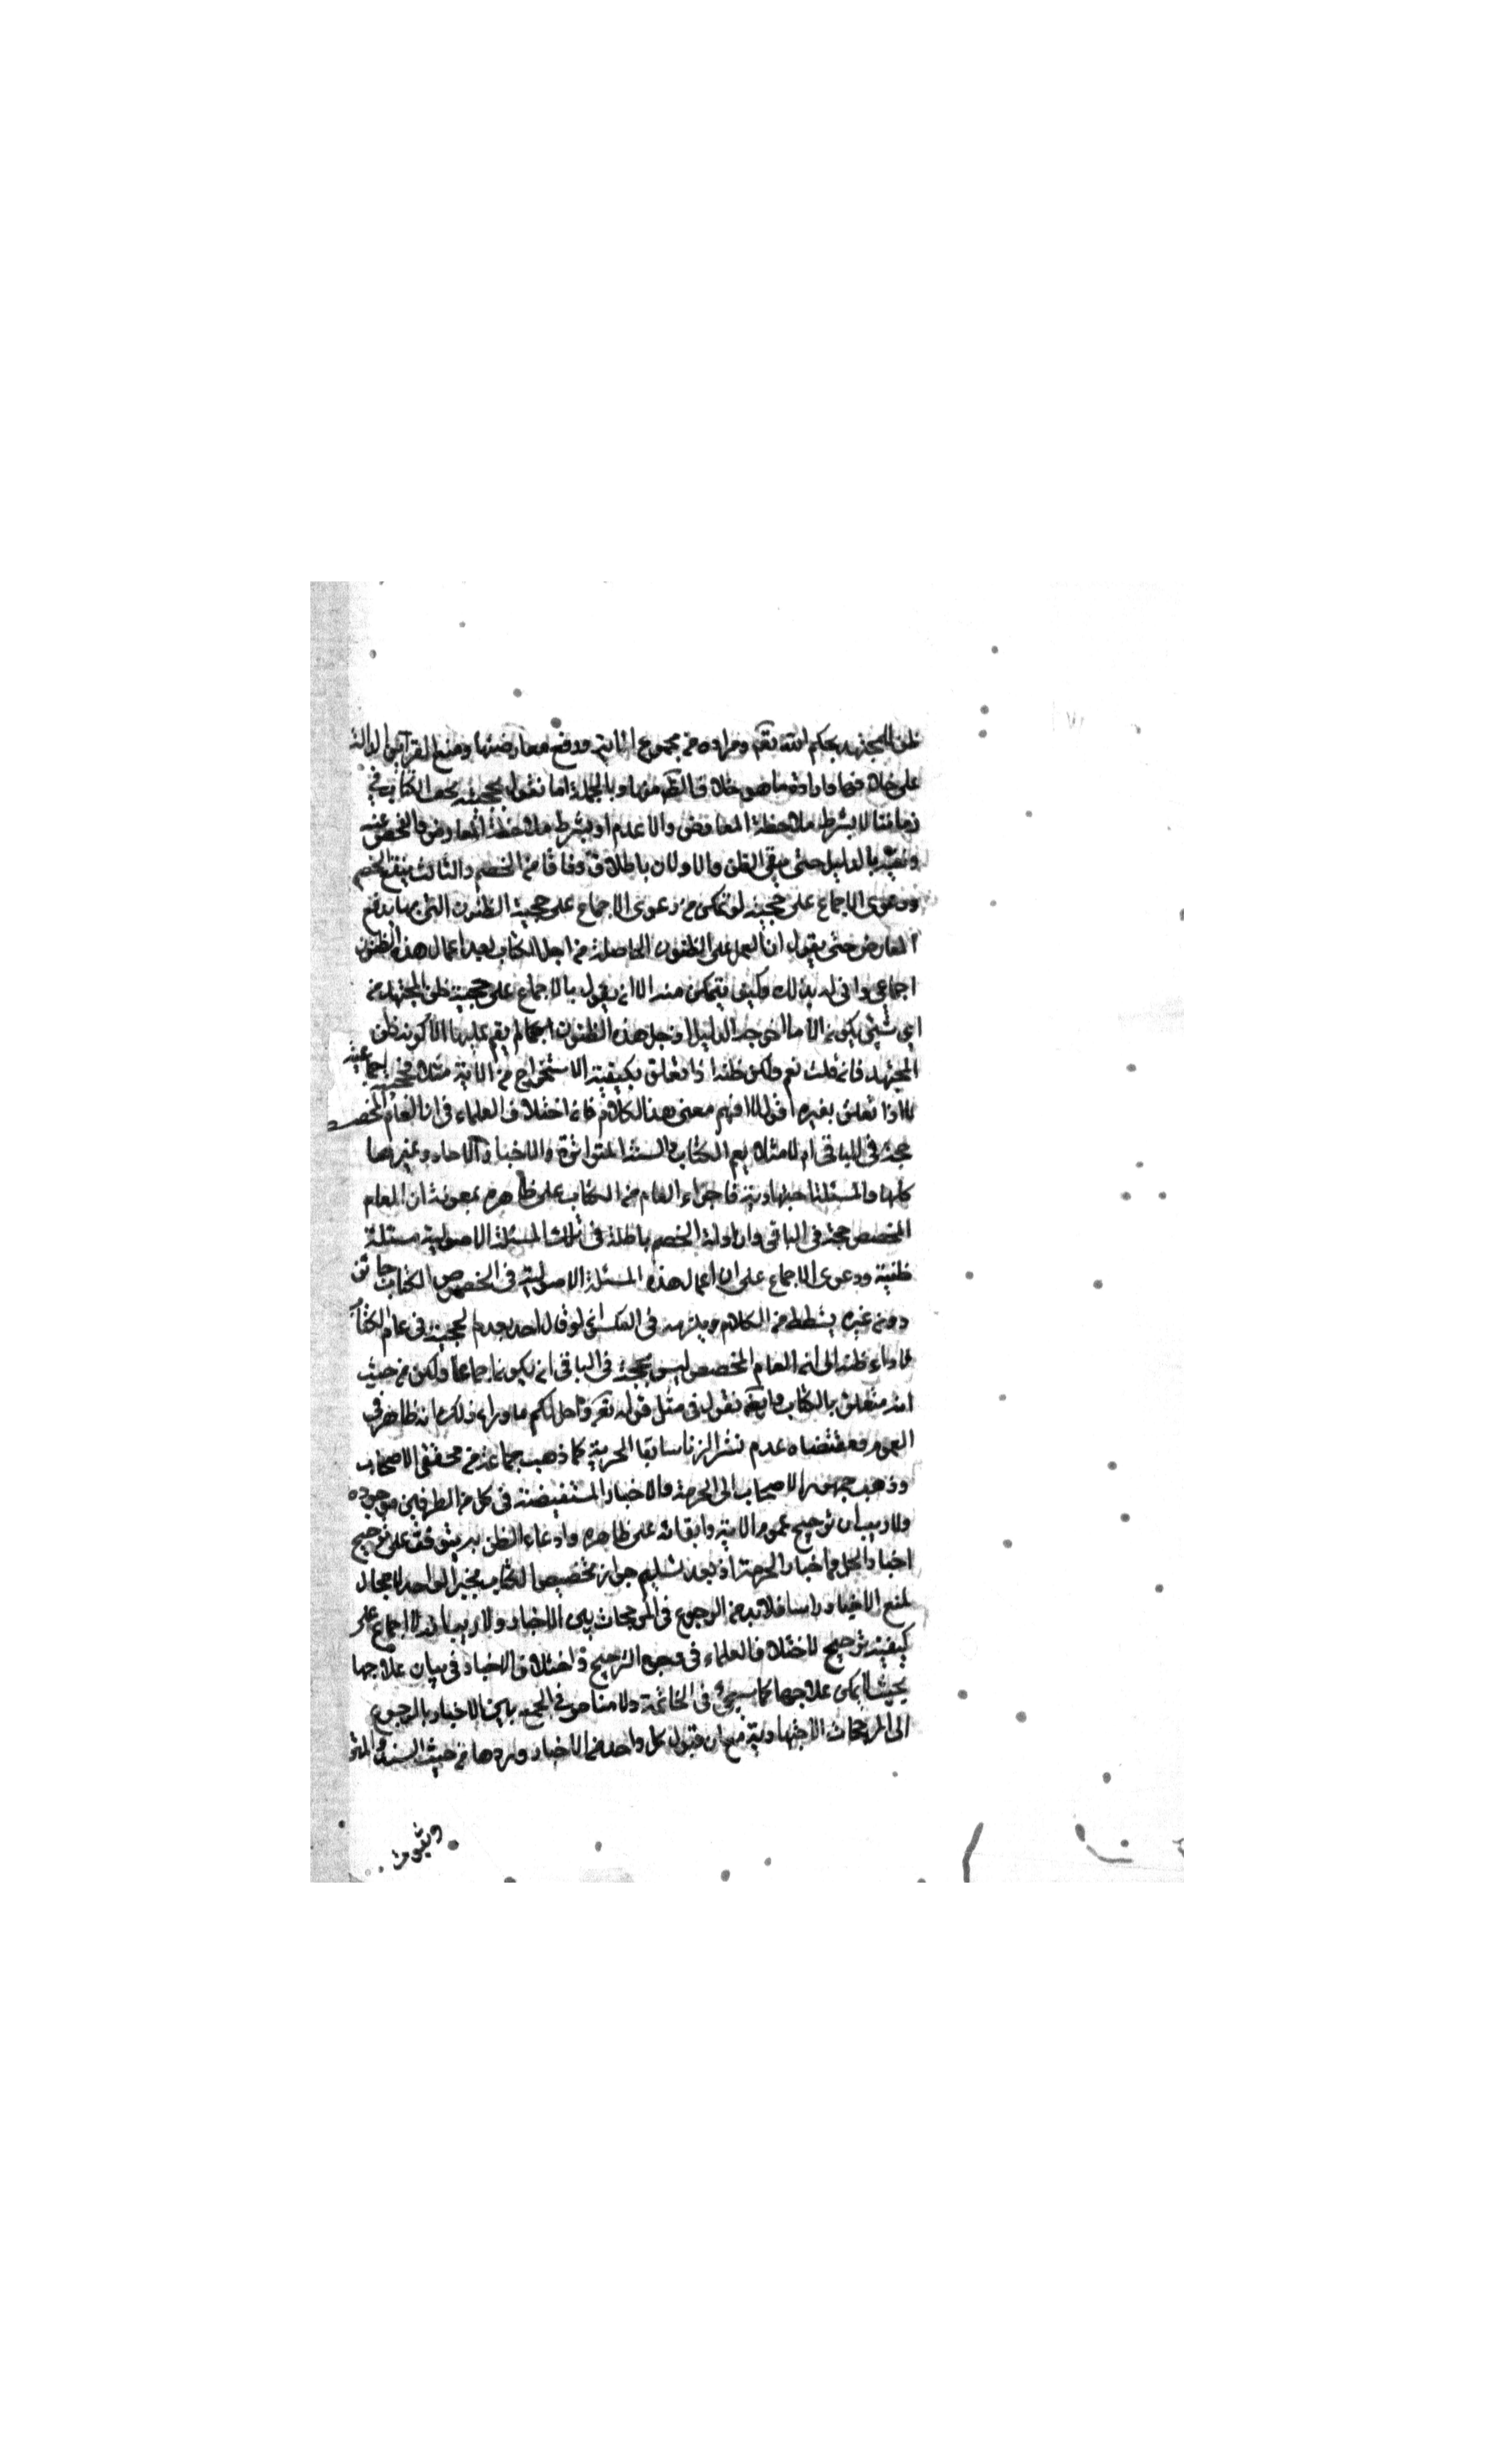 ظن المجتهد بحكم الله تعم ومراده من مجموع اثابته ودفع معارضتها ومنع القرآين الدالة
على خلافها وارادة ما هو خلاف الظم منها وبالجملة اما نقول بحجيته بحق الكتاب في
زماننا لا بشرط ملاحظة المعارض والا عدم او بشرط ملاحظة المعارض والفحص عنه
بالدليل حتى يبقى الظن والاولان باطلان وفاقا من الخصم والثالث ينفع الخصم
ودعوى الاجماع على حجيته لو تمكن من دعوى الاجماع على حجية الظنون التي بها يدفع
المعارض حتى يقول ان العمل على الظنون الحاصلة من اجل الكتاب بعد اعمال هذه الظنون
اجماعي وانى له بذلك وكيف يتمكن منه الا ان يقول بالاجماع على حجية ظن المجتهد من
اي شيئ يكون الا ما اخرجه الدليل اذ جل هذه الظنون مما لم يقم عليها الا كونه ظن
المجتهد فان قلت نعم ولكن ظنه اذا تعلق بكيفية الاستخراج من الاية مثلا فحجيته اجماعية
لا اذا تعلق بغيره قلت لا افهم معنى هذا الكلام فان اختلاف العلماء في ان العام المخصص
حجة في الباقي ام لا مثلا يعم الكتاب والسنة المتواترة والاخبار الاحاد وغيرها
كلها والمسئلة اجتهادية فاجراء العام من الكتاب على ظاهره بمعونة ان العام
المخصص حجة في الباقي وان ادلة الخصم باطلة في تلك المسئلة الاصولية مسئلة
ظنية ودعوى الاجماع على ان اعمال هذه المسئلة الاصولية في الخصوص الكتاب جائز
دون غيره شطط من الكلام ويلزمه في العكس اي لو قال احد بعدم الحجية في عام الكتاب
لاداء ظنه الى ان العام المخصص ليس بحجة في الباقي ان يكون اجماعا ولكن من حيث
انه متعلق بالكتاب وايضا نقول في مثل قوله تعم واحل لكم ما وراء ذلك انه ظاهر في
العموم فمقتضاه عدم نشر الزنا سابقا الحرمة كما ذهب جماعة من محققي الاصحاب
وذهب جمهور الاصحاب الى الحرمة والاخبار المستفيضة في كل من الطرفين موجوده
ولا ريب ان ترجيح عموم الاية وابقائه على ظاهره وادعاء الظن به يتوقف على ترجيح
اخبار الحل واخبار الحرمة اذ بعد تسليم جواز تخصيص الكتاب بخبر الواحد لا مجال
لمنع الاخبار راسا فلا بد من الرجوع في المرجحات بين الاخبار ولا ريب انه لا اجماع على
كيفية ترجيح لاختلاف العلماء في وجوه الترجيح واختلاف الاخبار في بيان علاجها
بحيث لا يمكن علاجها كما سيجئ في الخاتمة ولا مناص في الجمع بين الاخبار بالرجوع
الى المرجحات الاجتهادية مع ان قبول كل واحد من الاخبار وردها من حيث السند والمتن